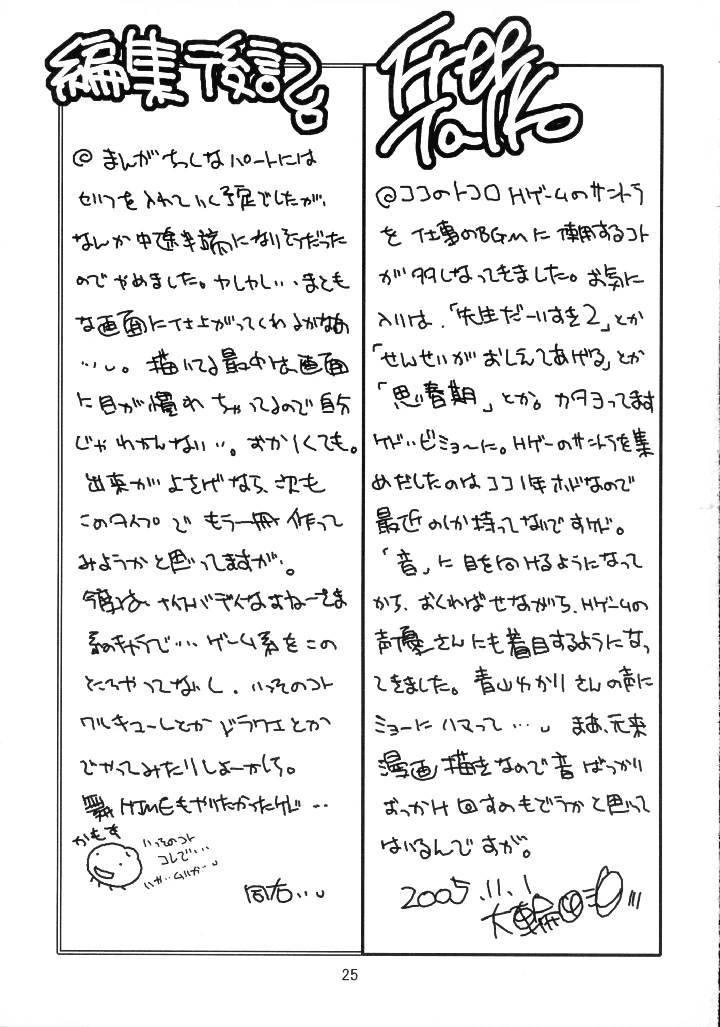 編集後記。
@まんがちっくなパートには
セリフを入れていく予定でしたが、
なんか中途半端になりそうだった
のでやめました。ヤレヤレ‥まとも
な画面に仕上がってくれるかなあ
…。描いてる最中は、画面
に目が慣れちゃってるので自分
じゃわかんない‥。おかしくても。
出来がよさげなら、次も
このタイプでもう一冊作って
みようかと思ってますが。
今度は、ナイスバディなおねーさま
系のキャラで…ゲーム系をこの
ところやってないし、いっそのコト
ワルキューレとかドラクエとか
でやってみたりしよーかしら。
舞HiMEもやりたかったケド…
かもす
いっそのコト
コレで…
いや…ムリか…
同右…
Free
Talk
@ココのトコロHゲームのサントラ
を仕事のBGMに使用するコト
が多くなってきました。お気に
入りは、「先生だーいすき2」とか
「せんせいがおしえてあげる」とか
「思春期」とか。カタヨってます
ケド‥ビミョーに。Hゲーのサントラを集
めだしたのはココ1年ホドなので
最近のしか持ってないですケド。
「音」に目を向けるようになって
から、おくればせながら、Hゲームの
声優さんにも着目するようになっ
てきました。青山ゆかりさんの声に
ミョーにハマって…。まあ、元来
漫画描きなので音ばっかり
おっかけ回すのもどうかと思って
はいるんですが。
2005.11.1
大輪
25